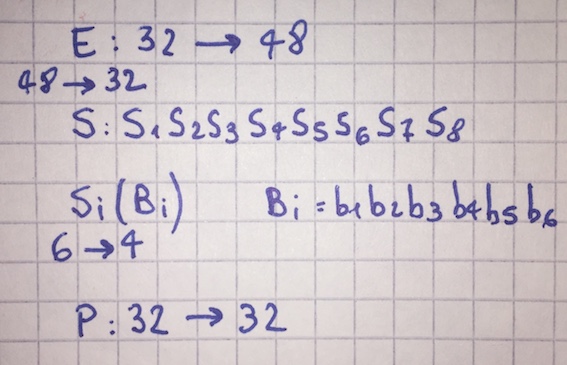 E : 32 → 48
48 → 32
S : S1 S2 S3 S4 S5 S6 S7 S8
Si (Bi) Bi = b1 b2 b3 b4 b5 b6
6 → 4
P : 32 → 32